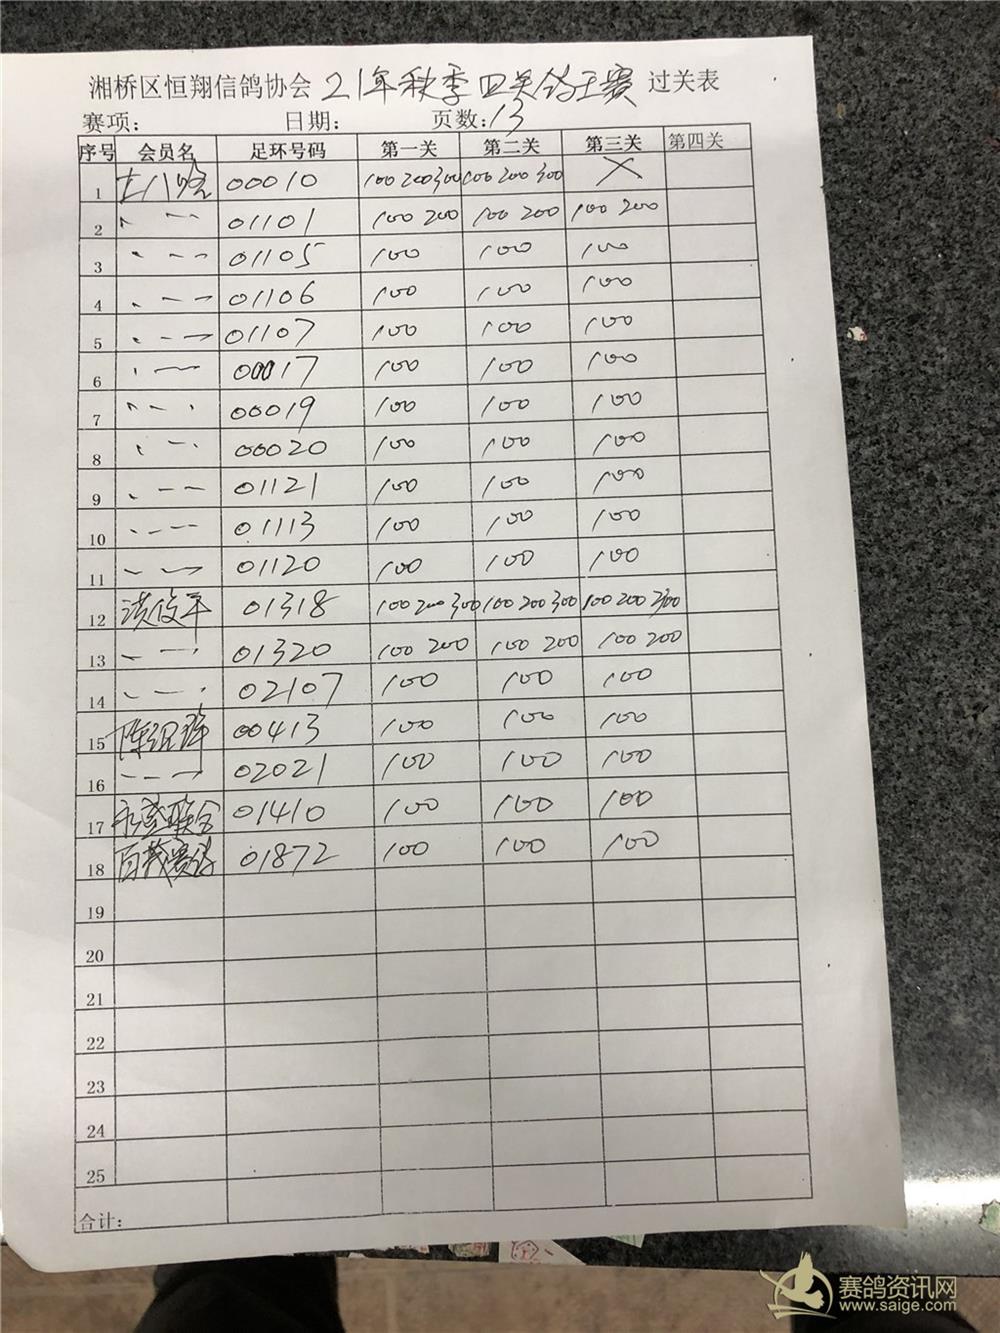 湘桥区恒翔信鸽协会 21年秋季四关鸽王赛 过关表
赛项: 日期: 页数:13
序号 会员名 足环号码 第一关 第二关 第三关 第四关
1 00010 100 200 300 100 200 300 X
2 01101 100 200 100 200 100 200
3 01105 100 100 100
4 01106 100 100 100
5 01107 100 100 100
6 00017 100 100 100
7 00019 100 100 100
8 00020 100 100 100
9 01121 100 100 100
10 01113 100 100 100
11 01120 100 100 100
12 01318 100 200 300 100 200 300 100 200 300
13 01320 100 200 100 200 100 200
14 02107 100 100 100
15 00413 100 100 100
16 02021 100 100 100
17 联合 01410 100 100 100
18 赛鸽 01872 100 100 100
19
20
21
22
23
24
25
合计:
赛鸽资讯网
www.saige.com